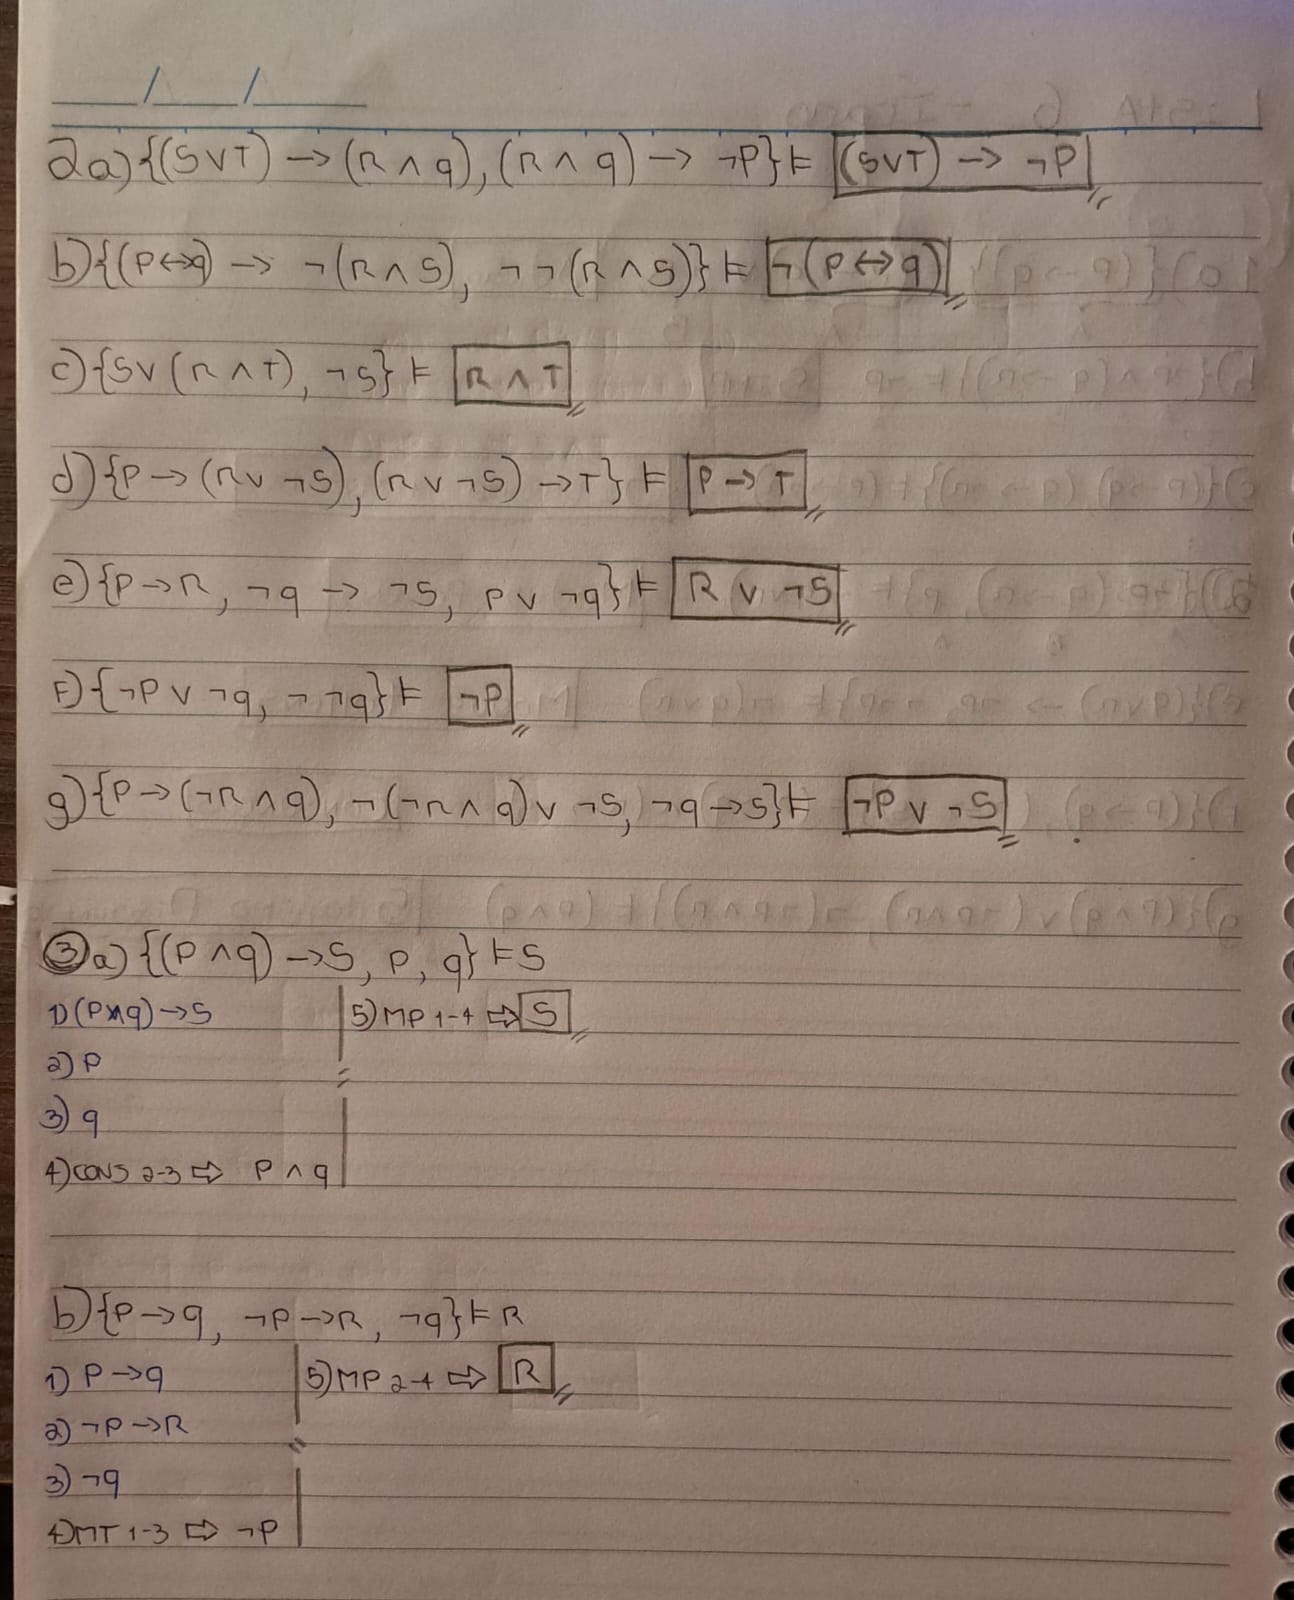 __/__/__
2a) {(S∨T) → (R ∧ q), (R ∧ q) → ¬P} ⊨ (S∨T) → ¬P
b) {(P↔q) → ¬(R ∧ S), ¬¬(R ∧ S)} ⊨ ¬(P↔q)
c) {S∨(R∧T), ¬S} ⊨ R∧T
d) {P→(R∨¬S), (R∨¬S)→T} ⊨ P→T
e) {P→R, ¬q → ¬S, P∨¬q} ⊨ R ∨ ¬S
F) {¬P∨¬q, ¬¬q} ⊨ ¬P
g) {P→(¬R∧q), ¬(¬R∧q)∨¬S, ¬q→S} ⊨ ¬P ∨ ¬S
③a) {(P∧q)→S, P, q} ⊨ S
1) (P∧q)→S
2) P
3) q
4) CONJ 2-3 ⇨ P∧q
5) MP 1-4 ⇨ S
b) {P→q, ¬P→R, ¬q} ⊨ R
1) P→q
2) ¬P→R
3) ¬q
4) MT 1-3 ⇨ ¬P
5) MP 2-4 ⇨ R